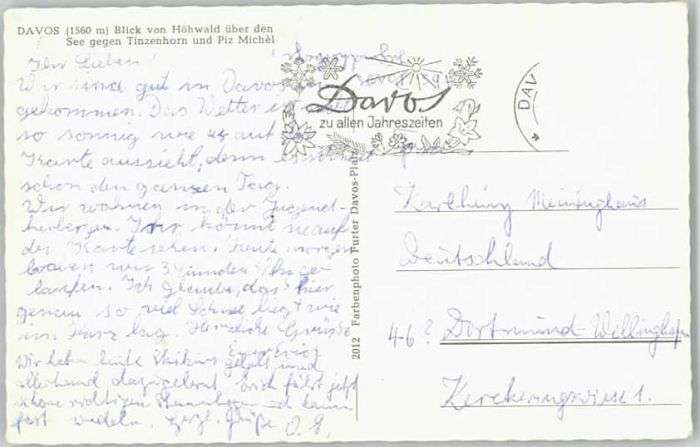 DAVOS (1560 m) Blick von Höhwald über den
See gegen Tinzenhorn und Piz Michèl
Ihr Lieben!
Wir sind gut in Davos
gekommen. Das Wetter ist
so sonnig wie es auf
Karte aussieht, denn es
schon den ganzen Tag.
Wir wohnen in der Jugend-
herberge. Ihr könnt sie auf
der Karte sehen. Heute morgen
wir 3 Stunden Ski ge-
laufen. Ich glaube, dass hier
genau so viel Schnee liegt wie
im Harz lag. Herzliche Grüsse
Wir haben heute Skikurs gehabt und
allerhand dazugelernt. Erich fährt jetzt
schone
fast wedeln. Herzl. Grüße
Davos
zu allen Jahreszeiten
DAV
2012 Farbenphoto Furter Davos-Platz
Karlheinz Meininghaus
Deutschland
46? Dortmund-Wellinghofen
Kerckeringwiese 1.